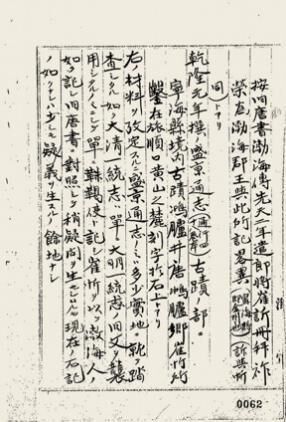 按旧唐書渤海傳先天二年遣郎將崔訢冊拜祚
榮為渤海郡王與此所記畧異
同上
乾隆元年撰ノ盛京通志古蹟ノ部ニ
寧海縣境内古蹟鴻臚井唐鴻臚卿崔忻所
鑿在旅順口黄山之麓刻字於石上トアリ
右ノ材料ヲ攷定スルニ盛京通志ノミハ多少實地ニ就キ踏
査シタル如ク大清一統志ハ單ニ大明一統志ノ旧文ヲ襲
用シタルノミニシテ單ニ靺鞨使ト記シ崔忻ヲ以テ渤海人ノ
如ク記シ旧唐書ニ對照シテ稍疑問ヲ生セルハ現在ノ石記
ノ如クナレハ少シモ疑義ヲ生スルノ餘地ナシ
0062